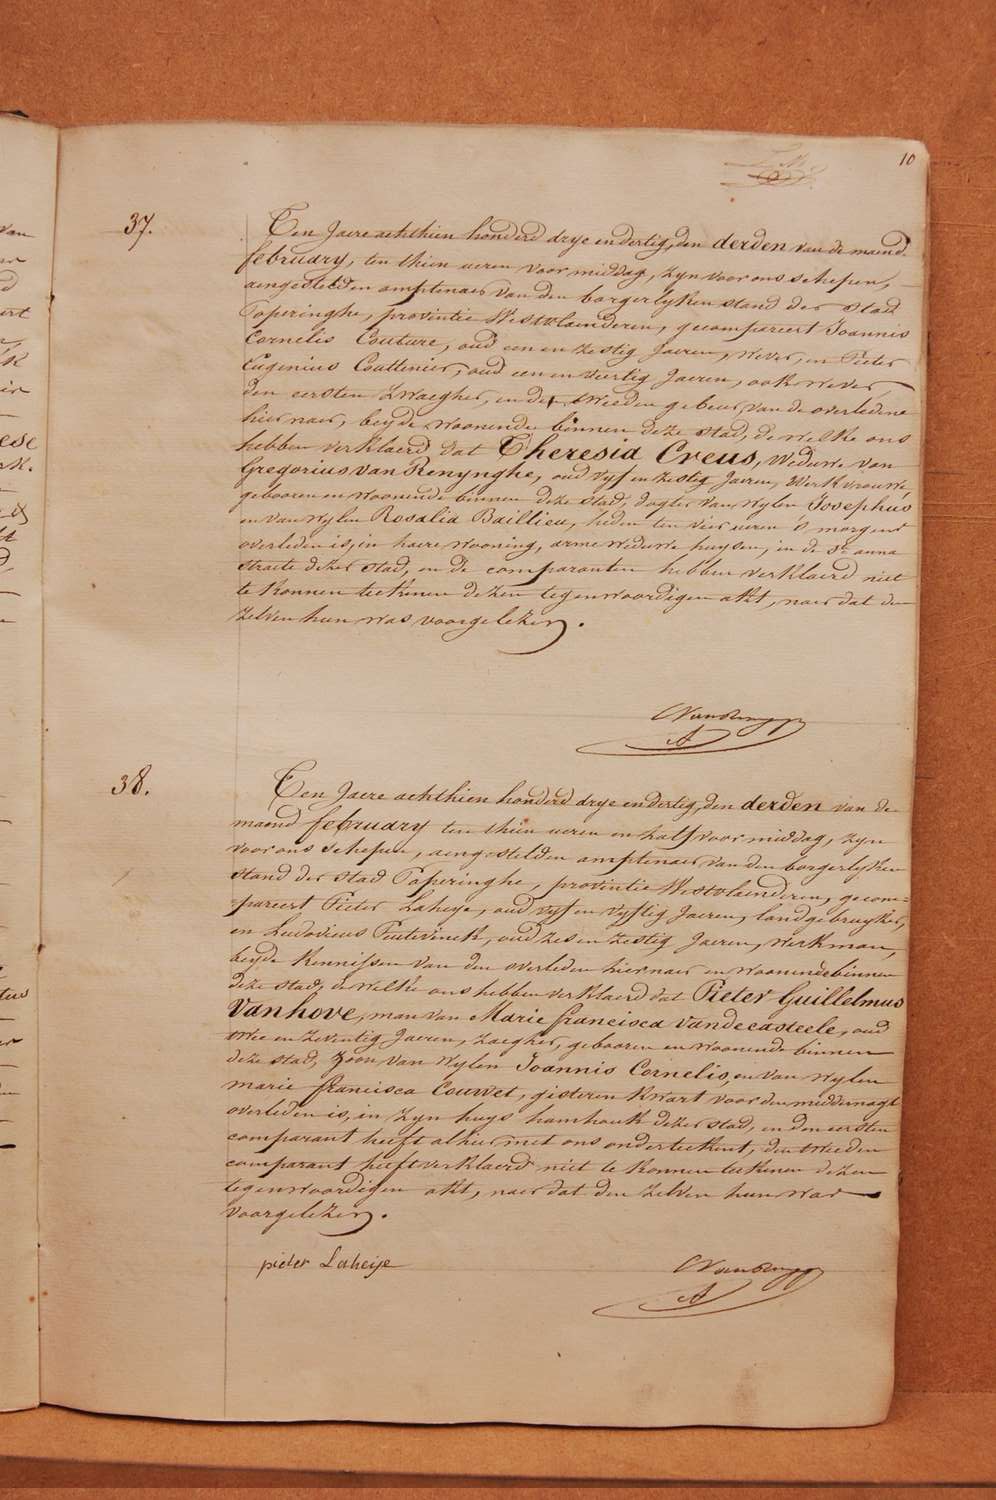 10
37.
Ten Jaere achthien honderd drye en dertig, den derden van de maend
february, ten thien ueren voor middag, zyn voor ons schepen,
aengestelden amptenaer van den borgerlyken stand der stad
Poperinghe, provintie Westvlaenderen, gecompareert Joannis
Cornelis Couture, oud een en zestig Jaeren, wever, en Pieter
Eugenius Couttenier, oud een en viertig Jaeren, ook wever,
den eersten zwaegher, en den tweeden gebuer, van de overledene
hier naer, beyde woonende binnen deze stad, de welke ons
hebben verklaerd dat Theresia Creus, Weduwe van
Gregorius van Renynghe, oud vyf en zestig Jaeren, Werkvrouwe,
gebooren en woonende binnen deze stad, dogter van wylen Josephus
en van wylen Rosalia Baillieu, heden ten vier ueren 's morgens
overleden is, in haere wooning, arme weduwe huysen, in de St anna
straete dezer stad, en de comparanten hebben verklaerd niet
te konnen teekenen dezen tegenwoordigen akt, naer dat den
zelven hun was voorgelezen.
38.
Ten Jaere achthien honderd drye en dertig, den derden van de
maend february ten thien ueren en half voor middag, zyn
voor ons schepen, aengestelden amptenaer van den borgerlyken
stand der stad Poperinghe, provintie Westvlaenderen, gecom=
=pareert Pieter Laheye, oud vyf en vyftig Jaeren, landgebruyker,
en Ludovicus Peutevinck, oud zes en zestig Jaeren, werkman,
beyde kennissen van den overleden hier naer en woonende binnen
deze stad, de welke ons hebben verklaerd dat Pieter Guillelmus
Vanhove, man van Marie francisca Vandecasteele, oud
twee en zeventig Jaeren, zaegher, gebooren en woonende binnen
deze stad, zoon van wylen Joannis Cornelis, en van wylen
marie francisca Couvret, gisteren kwart voor den middernagt
overleden is, in zyn huys hamhouk dezer stad, en den eersten
comparant heeft alhier met ons onderteekent, den tweeden
comparant heeft verklaerd niet te konnen teekenen dezen
tegenwoordigen akt, naer dat den zelven hun was
voorgelezen.
pieter Laheije